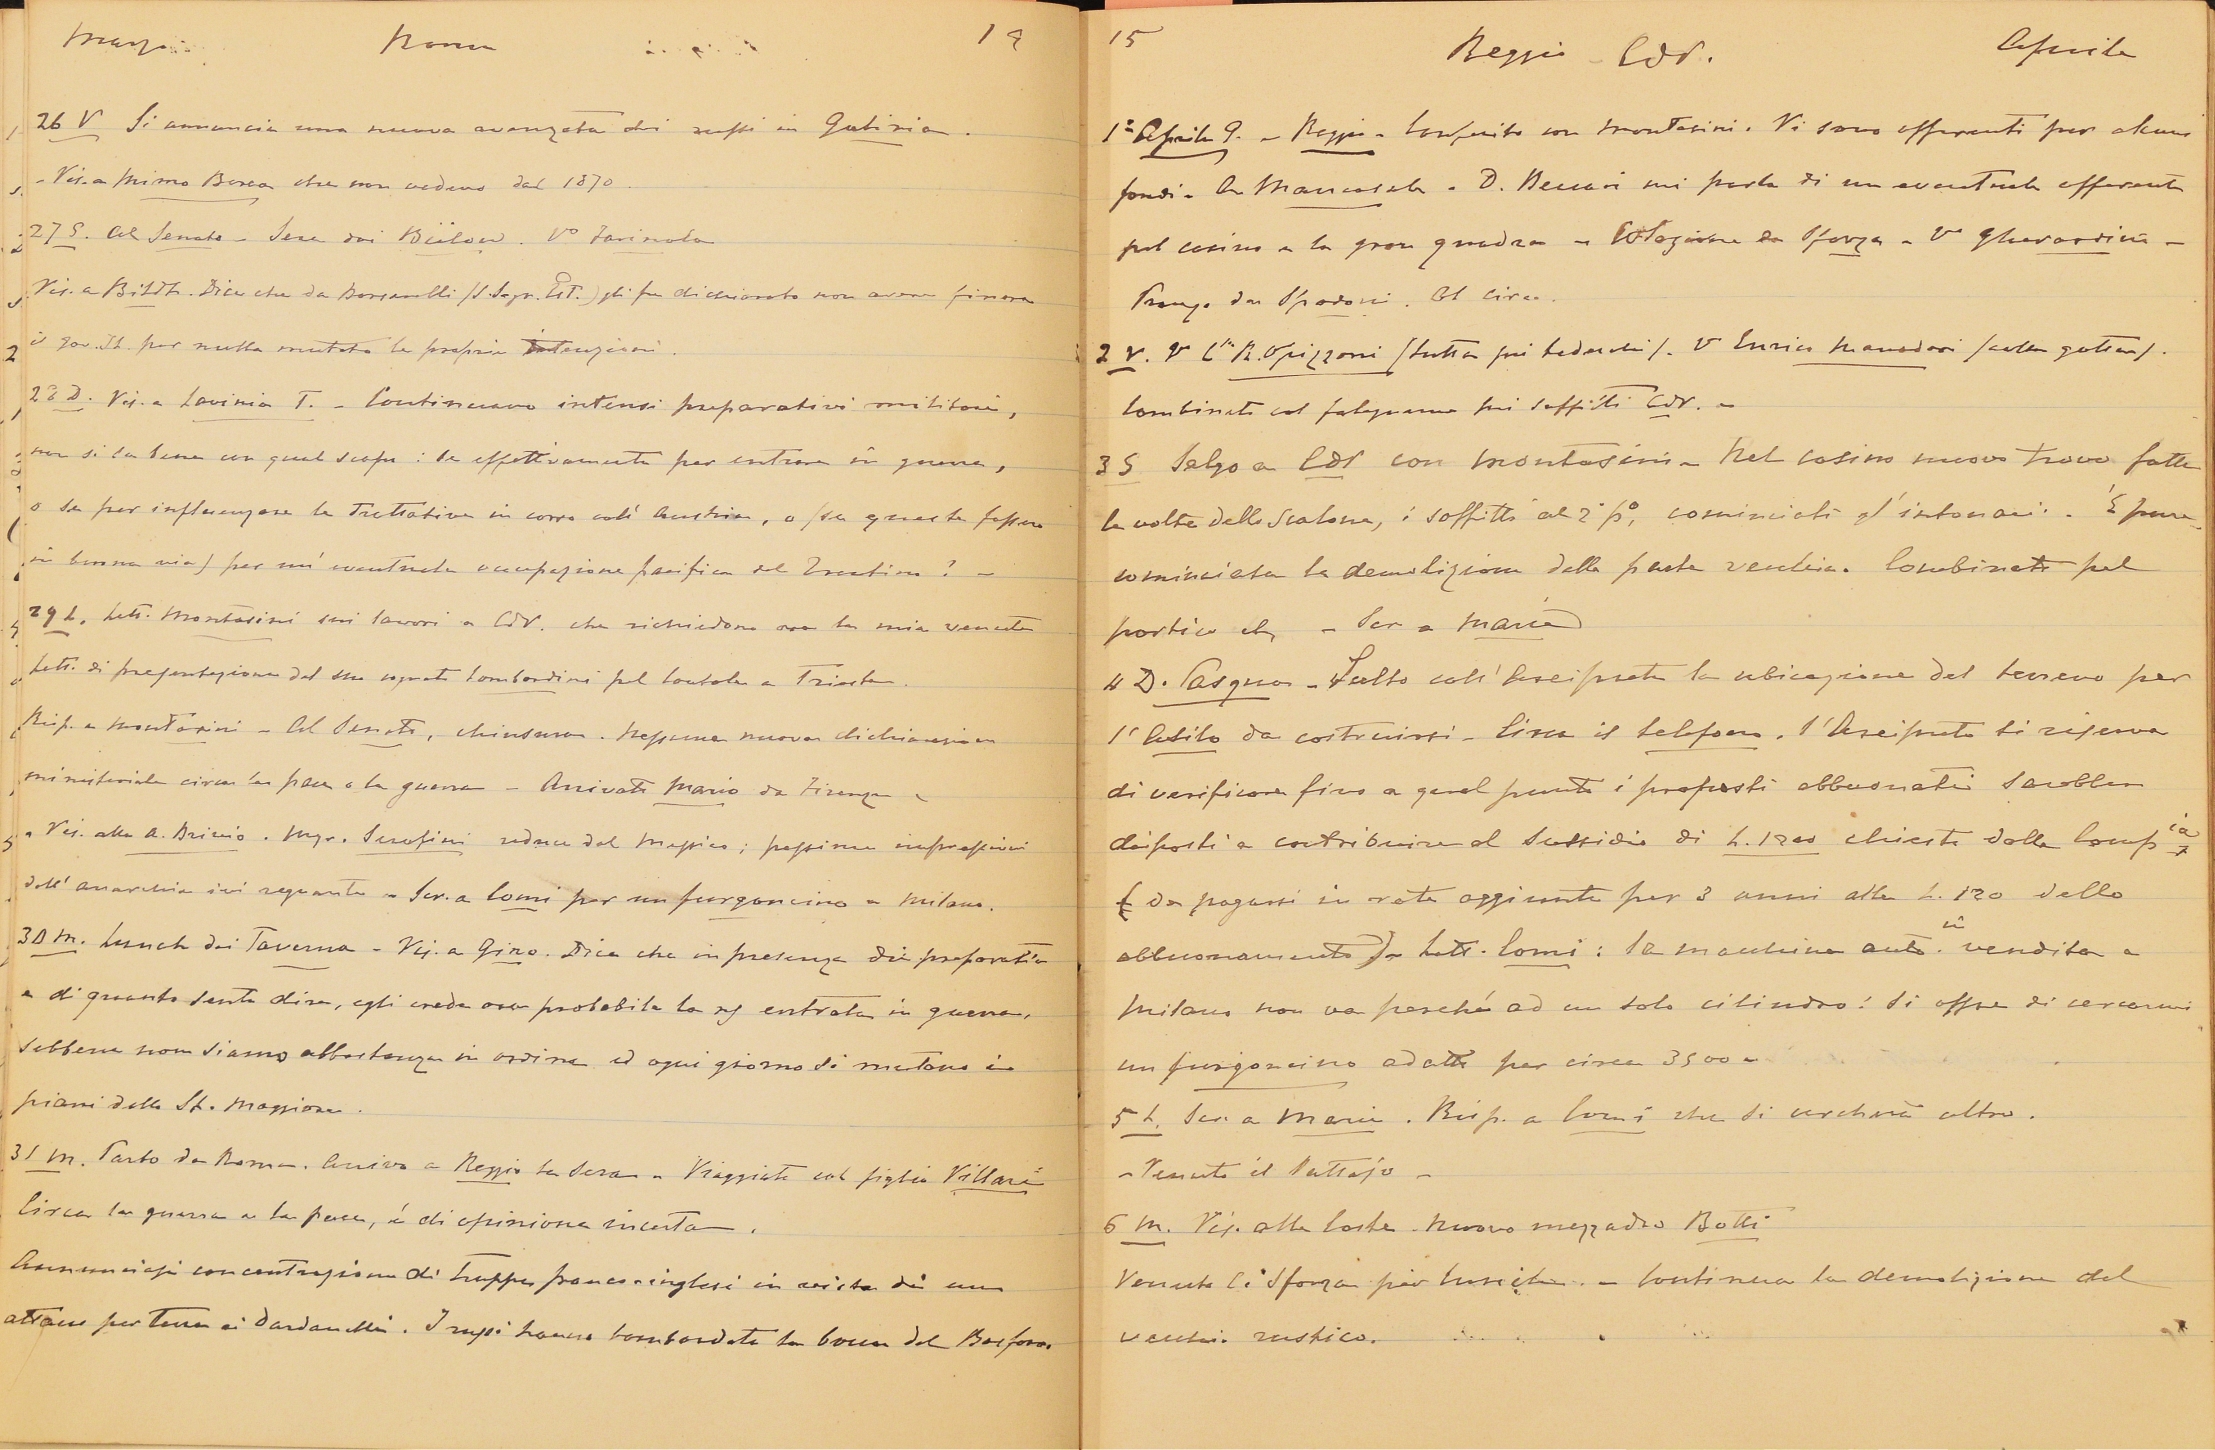 Marzo Roma 14
26 V Si annuncia una nuova avanzata dei russi in Galizia.
- Vis. a Mimo Borea che non vedevo dal 1870.
27 S. Al Senato - Sera dai Bülow. Vo Farinola
Vis. a Bildt. Dice che da Borsarelli (S. Segr. Est.) gli fu dichiarato non avere finora
il gov. It. per nulla mutato le proprie intenzioni.
28 D. Vis. a Lavinia T. - Continuano intensi preparativi militari,
non si sa bene con qual scopo: se effettivamente per entrare in guerra,
o se per influenzare le trattative in corso coll'Austria, o (se queste fossero
in buona via) per un'eventuale occupazione pacifica del Trentino? -
29 L. Lett. Montasini sui lavori a CdV. che richiedono ora la mia venuta
Lett. di presentazione del suo cognato Lombardini pel Console a Trieste.
Risp. a Montasini - Al Senato, chiusura. Nessuna nuova dichiarazione
ministeriale circa la pace o la guerra - Arrivato Mario da Firenze -
- Vis. alla A. Brivio. Mgr. Serafini reduce dal Messico; pessime impressioni
dell'anarchia ivi regnante - Scr. a Comi per un furgoncino a Milano.
30 M. Lunch dai Taverna - Vis. a Gino. Dice che in presenza dei preparativi
e di quanto sente dire, egli crede ora probabile la ns entrata in guerra,
sebbene non siamo abbastanza in ordine ed ogni giorno si mutano i
piani dello St. Maggiore.
31 M. Parto da Roma. Arrivo a Reggio la sera - Viaggiato col figlio Villari
Circa la guerra e la pace, è di opinione incerta.
Annunciasi concentrazione di truppe franco-inglesi in vista di un
attacco per terra ai Dardanelli. I russi hanno bombardato la bocca del Bosforo.
15 Reggio - CdV. Aprile
1° Aprile G. - Reggio - Conferito con Montasini. Vi sono offerenti per alcuni
fondi - a Mancasale - D. Beccari mi parla di un eventuale offerente
pel casino e la gran quadra - Colazione da Sforza - Vo Gherardini -
Pranzo da Spadoni. Al circo.
2 V. Vo Css R. Opizzoni (tutta pei tedeschi). Vo Enrico Manodori (colla gotta).
Combinato col falegname pei soffitti CdV. -
3 S Salgo a CdV con Montasini - Nel casino nuovo trovo fatte
le volte dello scalone, i soffitti al 2° po, cominciati gl'intonaci. - È pure
cominciata la demolizione della parte vecchia. Combinato pel
portico etc. - Scr a Maria
4 D. Pasqua - Scelto coll'Arciprete la ubicazione del terreno per
l'Asilo da costruirsi - Circa il telefono, l'Arciprete si riserva
di verificare fino a qual punto i proposti abbuonati sarebbero
disposti a contribuire al sussidio di L. 1200 chiesto dalla Compia
(da pagarsi in rate aggiunte per 3 anni alle L. 120 dello
abbuonamento) - Lett. Comi: la macchina auto. in vendita a
Milano non va perchè ad un solo cilindro: si offre di cercarmi
un furgoncino adatto per circa 3500 -
5 L. Scr. a Maria. Risp. a Comi che si cercherà altro.
- Venuto il Pattajo -
6 M. Vis. alla Costa - Nuovo mezzadro Botti
Venuta C. Sforza per lunch. - Continua la demolizione del
vecchio rustico.